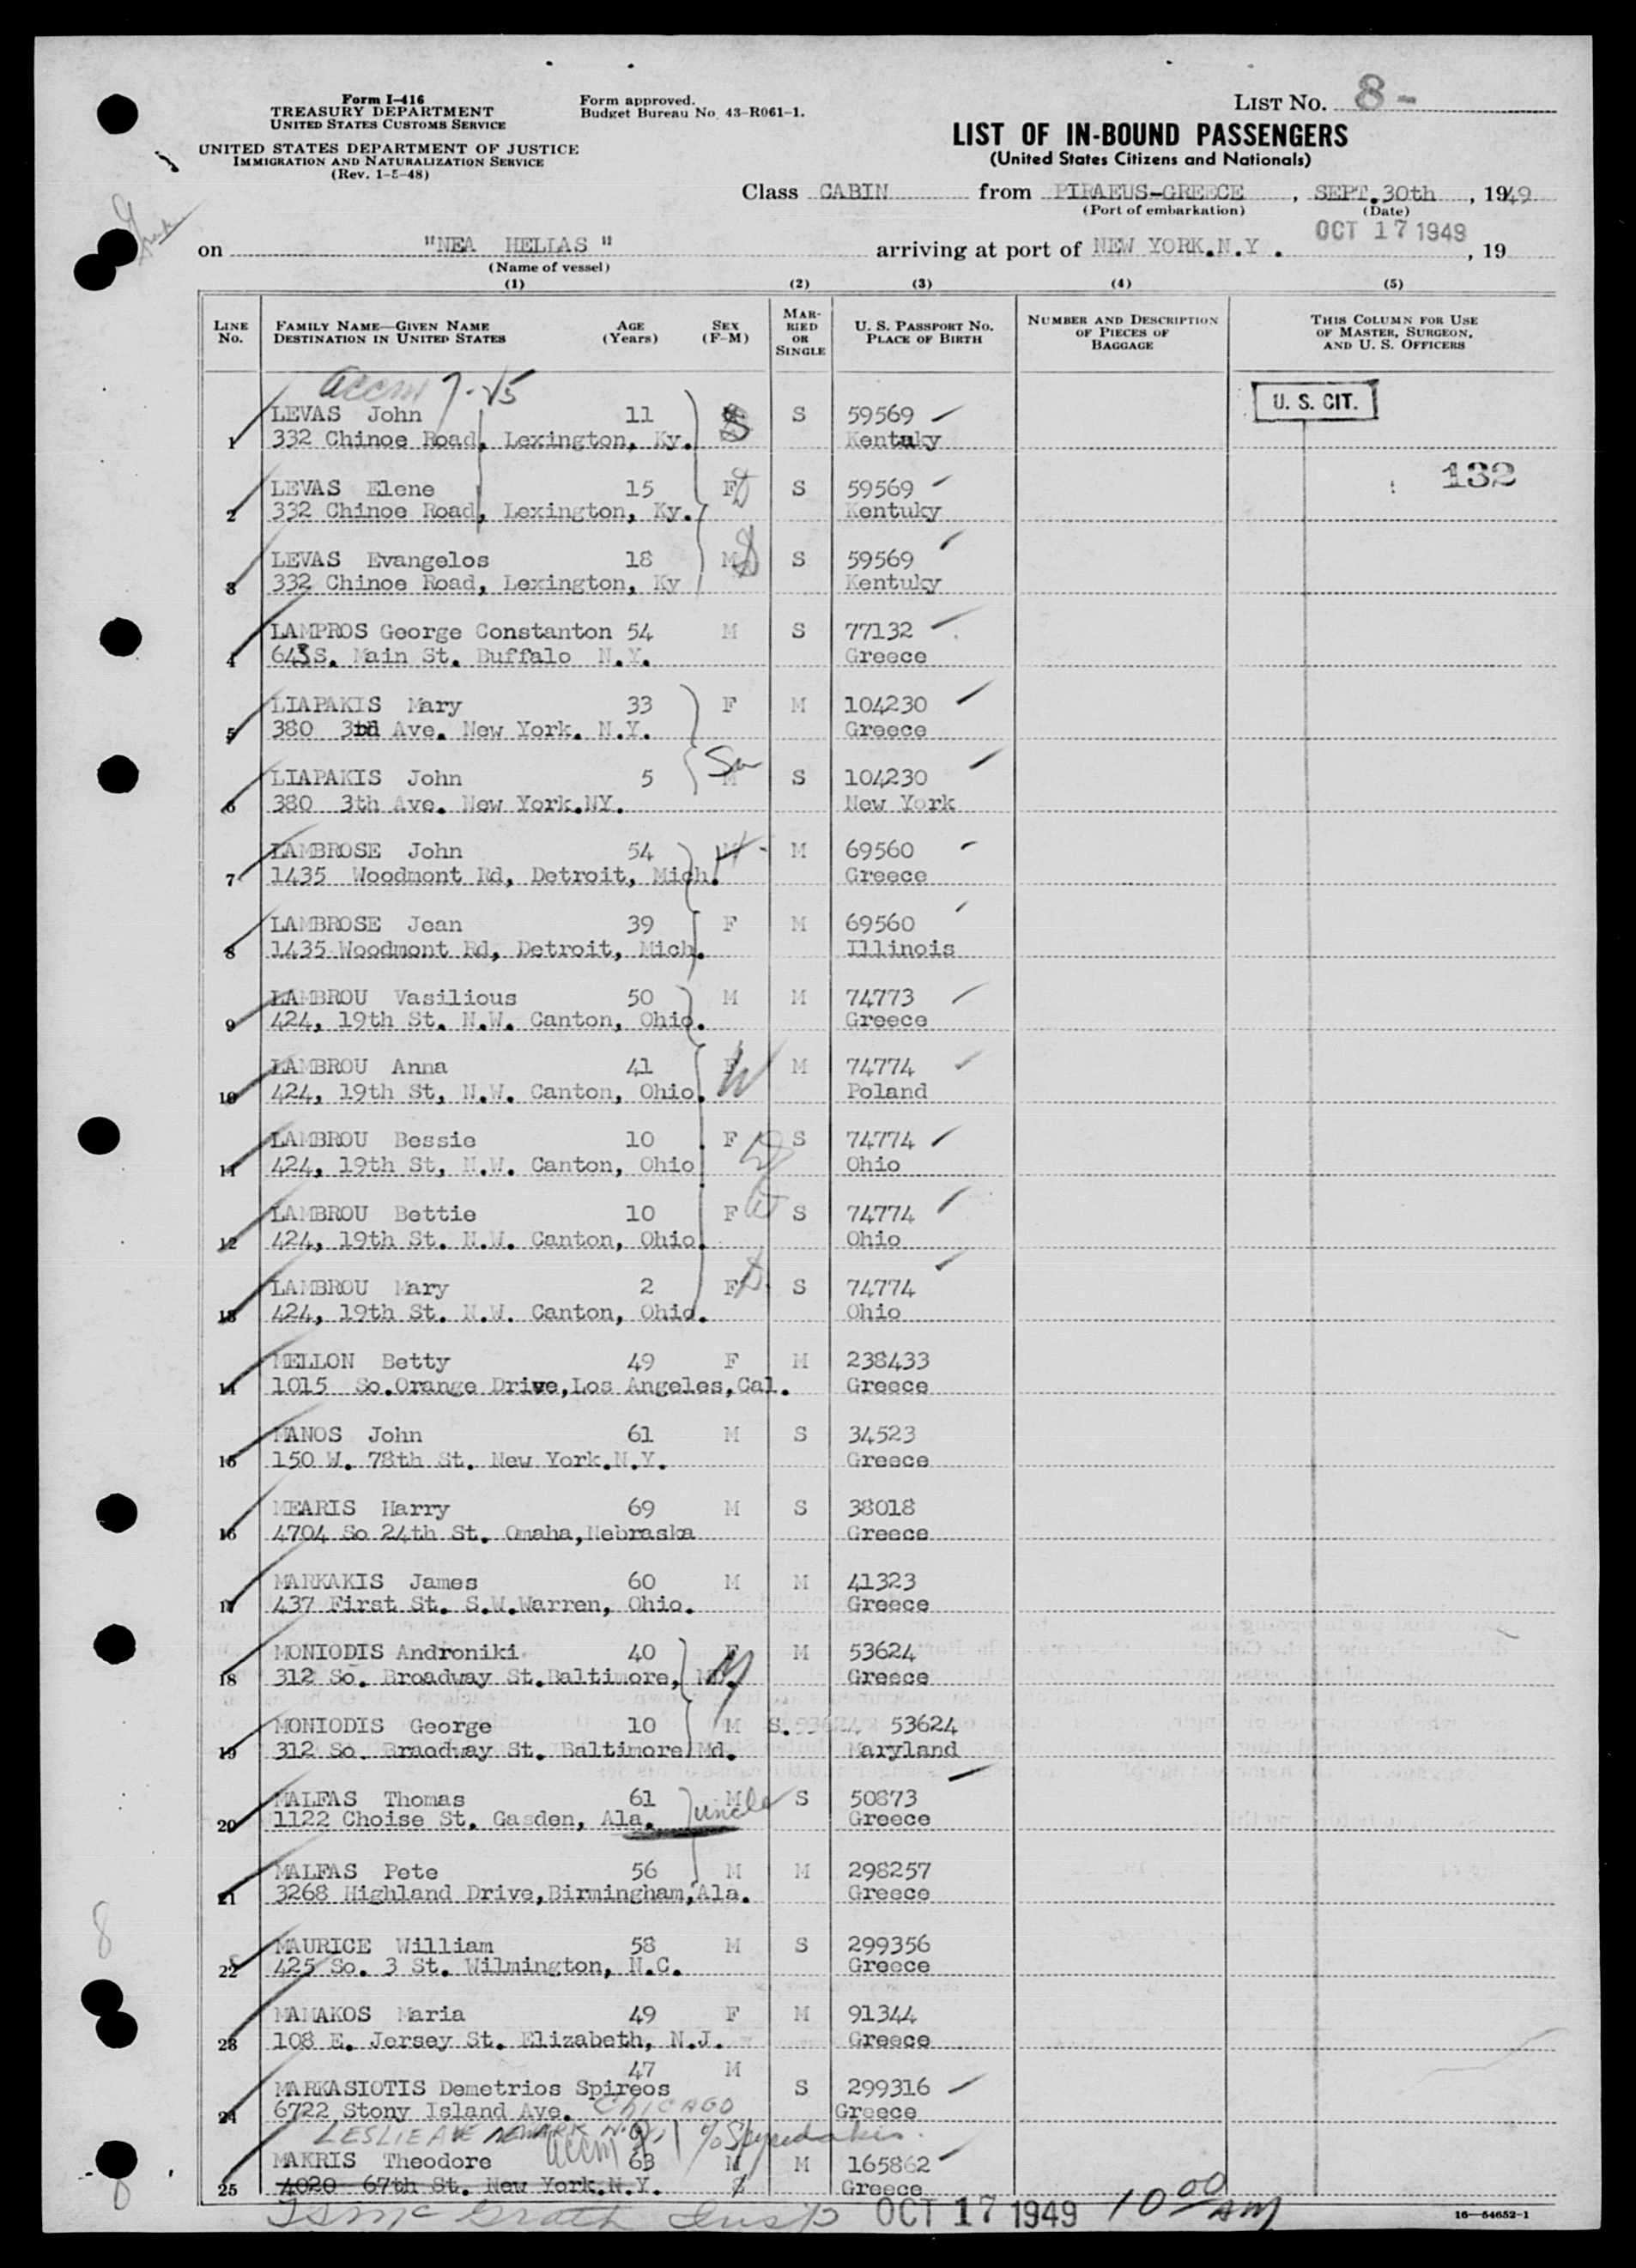 Form I-416
TREASURY DEPARTMENT
UNITED STATES CUSTOMS SERVICE
UNITED STATES DEPARTMENT OF JUSTICE
IMMIGRATION AND NATURALIZATION SERVICE
(Rev. 1-5-48)
Form approved.
Budget Bureau No. 43-R061-1.
LIST NO. 8-
LIST OF IN-BOUND PASSENGERS
(United States Citizens and Nationals)
Class CABIN from PIRAEUS-GREECE, SEPT.30th, 1949
(Port of embarkation) (Date)
OCT 17 1949
on "NEA HELLAS" arriving at port of NEW YORK.N.Y. , 19
(Name of vessel)
(1) (2) (3) (4) (5)
LINE No. FAMILY NAME—GIVEN NAME DESTINATION IN UNITED STATES AGE (Years) SEX (F-M) MARRIED OR SINGLE U. S. PASSPORT NO. PLACE OF BIRTH NUMBER AND DESCRIPTION OF PIECES OF BAGGAGE THIS COLUMN FOR USE OF MASTER, SURGEON, AND U. S. OFFICERS
accm 7-15
LEVAS John 11 S 59569 U. S. CIT.
1 332 Chinoe Road, Lexington, Ky. Kentuky
132
LEVAS Elene 15 F S 59569
2 332 Chinoe Road, Lexington, Ky. Kentuky
LEVAS Evangelos 18 M S 59569
3 332 Chinoe Road, Lexington, Ky Kentuky
LAMPROS George Constanton 54 M S 77132
4 643 S. Main St. Buffalo N.Y. Greece
LIAPAKIS Mary 33 F M 104230
5 380 3rd Ave. New York. N.Y. Greece
LIAPAKIS John 5 M S 104230
6 380 3th Ave. New York.NY. New York
LAMBROSE John 54 M M 69560
7 1435 Woodmont Rd, Detroit, Mich. Greece
LAMBROSE Jean 39 F M 69560
8 1435 Woodmont Rd, Detroit, Mich. Illinois
LAMBROU Vasilious 50 M M 74773
9 424, 19th St. N.W. Canton, Ohio. Greece
LAMBROU Anna 41 F M 74774
10 424, 19th St, N.W. Canton, Ohio. Poland
LAMBROU Bessie 10 F S 74774
11 424, 19th St, N.W. Canton, Ohio Ohio
LAMBROU Bettie 10 F S 74774
12 424, 19th St. N.W. Canton, Ohio. Ohio
LAMBROU Mary 2 F S 74774
13 424, 19th St. N.W. Canton, Ohio. Ohio
MELLON Betty 49 F M 238433
14 1015 So.Orange Drive,Los Angeles,Cal. Greece
MANOS John 61 M S 34523
15 150 W. 78th St. New York.N.Y. Greece
MEARIS Harry 69 M S 38018
16 4704 So 24th St. Omaha,Nebraska Greece
MARKAKIS James 60 M M 41323
17 437 First St. S.W.Warren, Ohio. Greece
MONIODIS Androniki 40 F M 53624
18 312 So. Broadway St.Baltimore, Md. Greece
MONIODIS George 10 M S. 53624
19 312 So. Braodway St. Baltimore Md. Maryland
MALFAS Thomas 61 M uncle S 50873
20 1122 Choise St. Gasden, Ala. Greece
MALFAS Pete 56 M M 298257
21 3268 Highland Drive,Birmingham,Ala. Greece
MAURICE William 58 M S 299356
22 425 So. 3 St. Wilmington, N.C. Greece
MAMAKOS Maria 49 F M 91344
23 108 E. Jersey St. Elizabeth, N.J. Greece
47 M
MARKASIOTIS Demetrios Spireos S 299316
24 6722 Stony Island Ave. CHICAGO Greece
LESLIE AVE NEWARK N.J. accm
MAKRIS Theodore 63 M M 165862
25 4020 67th St. New York.N.Y. Greece
McGrath Insp OCT 17 1949 10 00 AM
16—54652-1